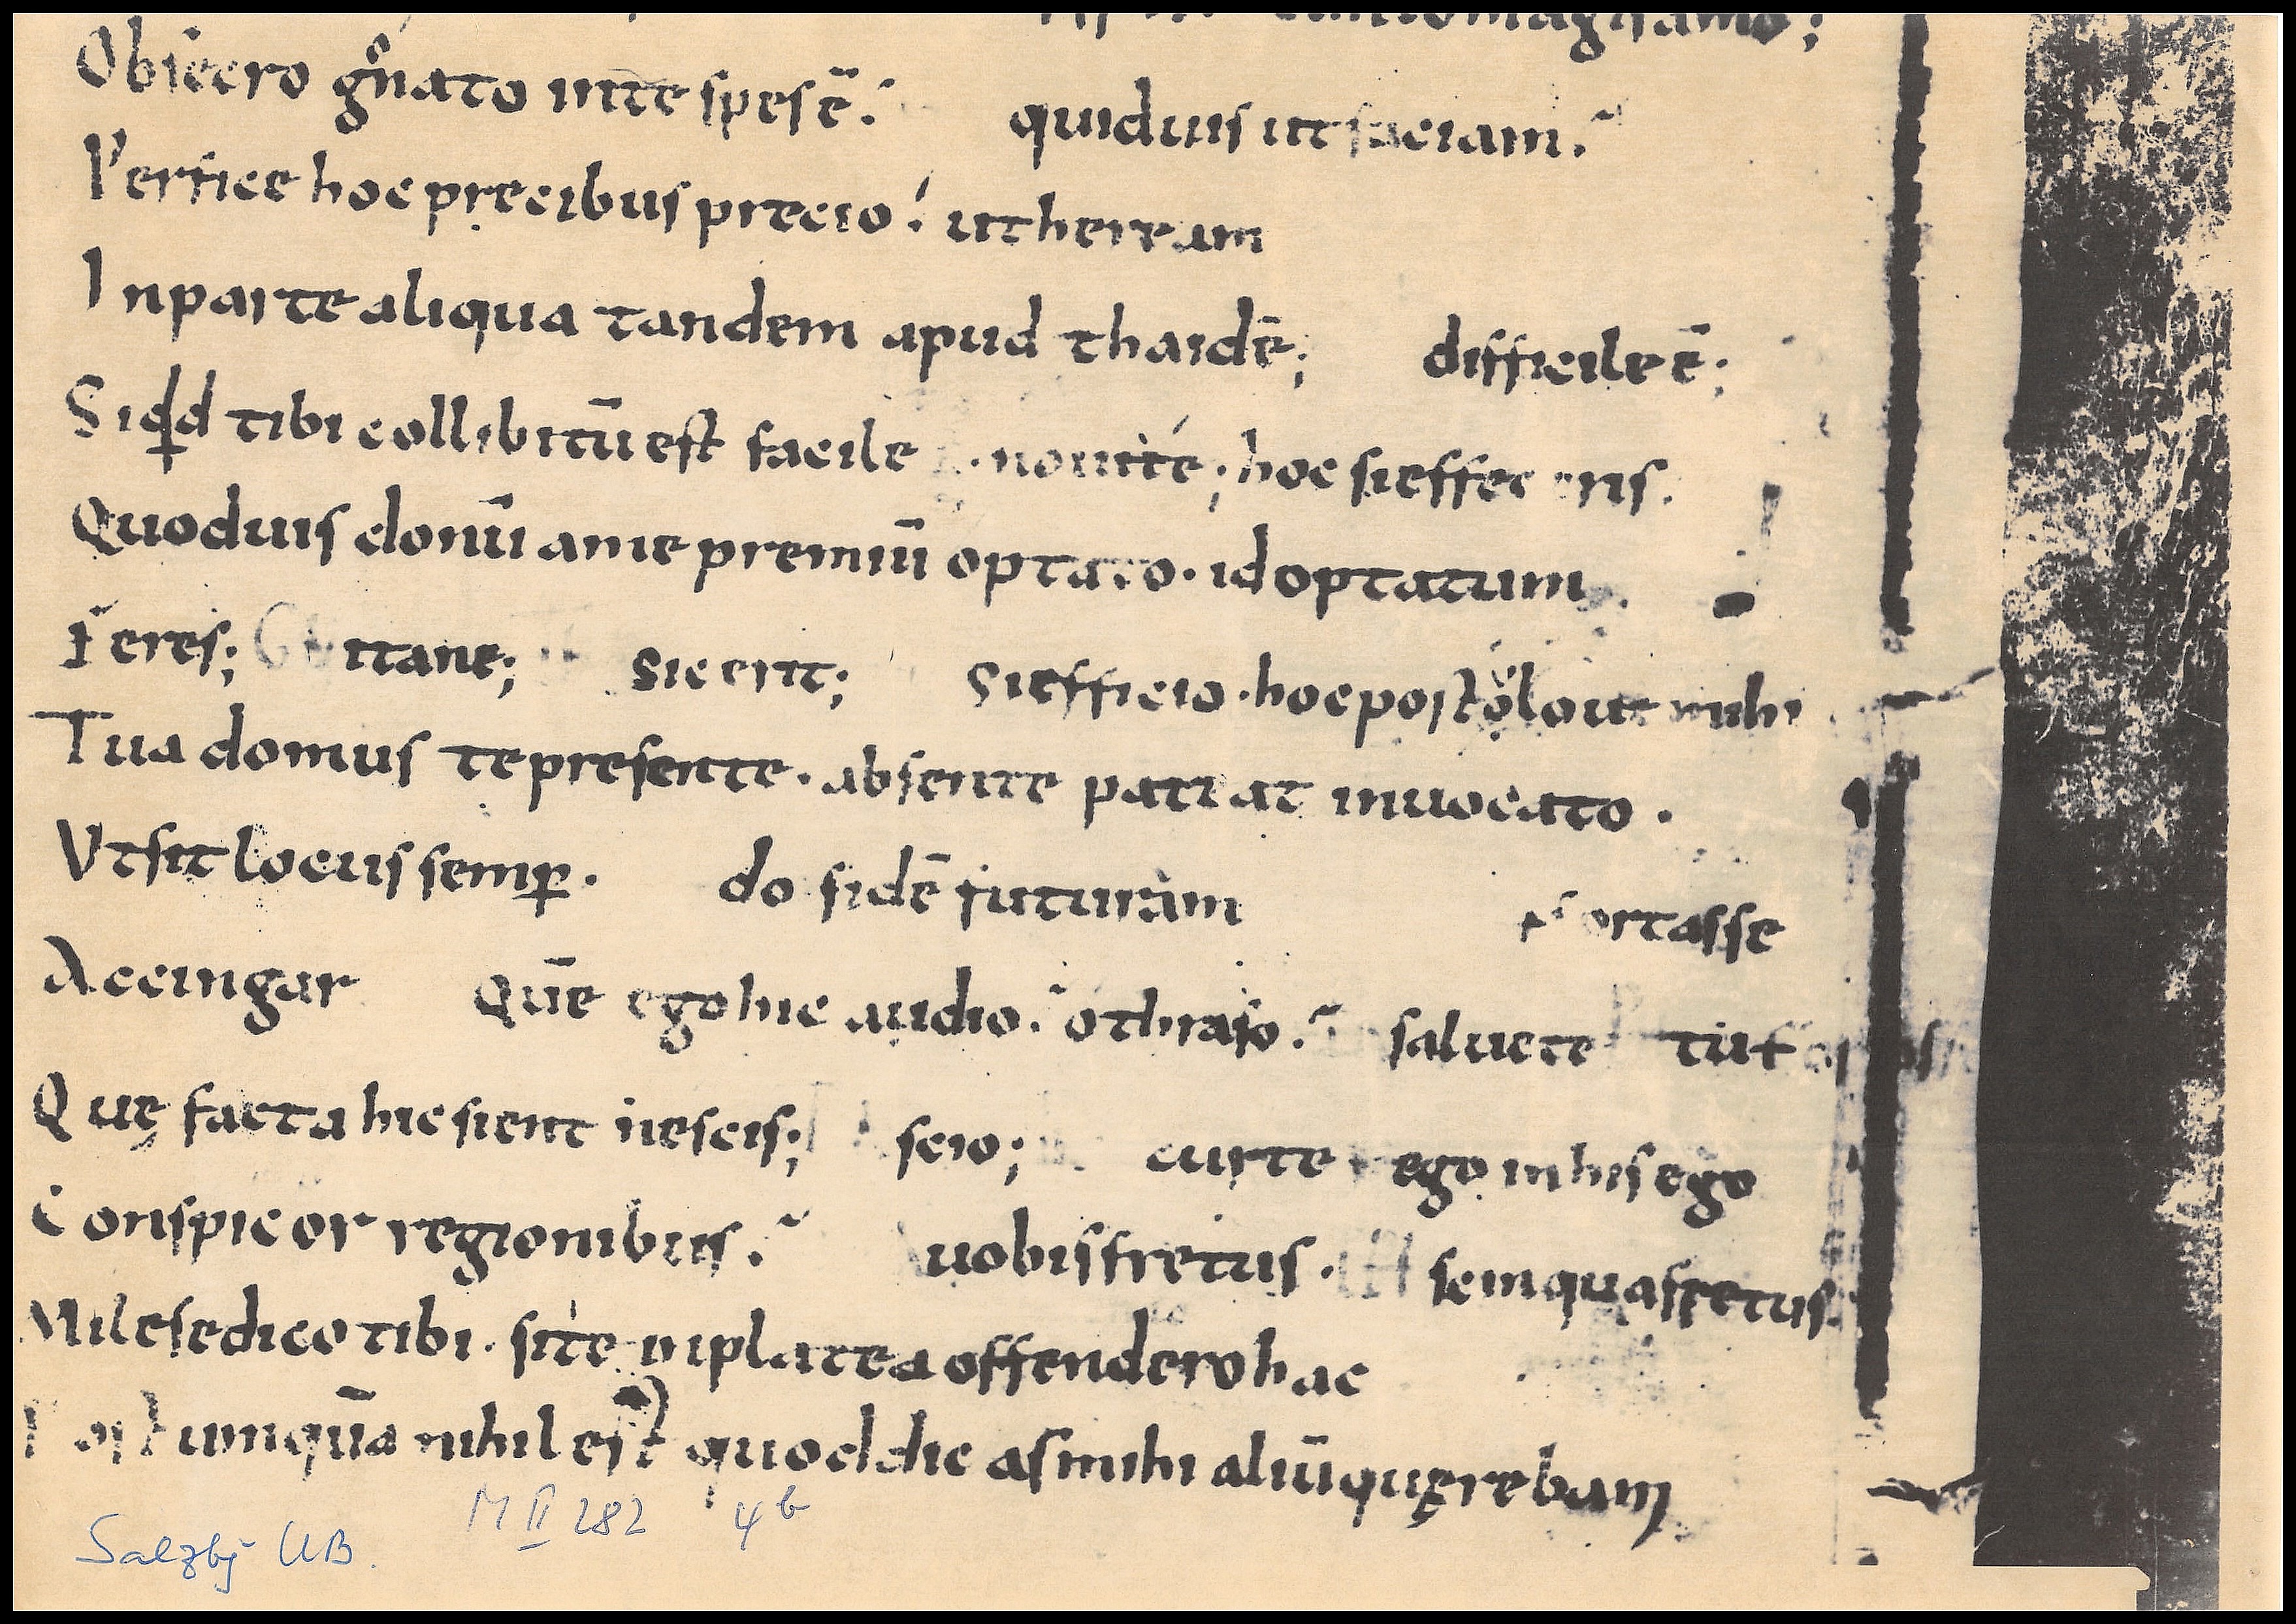 tantomagisamo;
Obsecro gnato inte spes ē. quiduis ut faciam.
Perfice hoc pręcibus precio. ut heream
Inparte aliqua tandem apud thaidē; difficile ē;
Siqd tibi collibitū est facile nouite; hoc si effec ris.
Quoduis donū a me premiū optato. id optatum.
Feres; itane; sic erit; Si efficio. hoc postolo ut mihi
Tua domus te presente. absente pateat inuocato.
Vt sit locus semp. do fidē futuram Fortasse
Accingar Quē ego hic audio. o thraso. saluete tu
Quę facta hic sient nescis; scio; cur te ego in his ego
Conspicor regionibus. uobis fretus. scin qua fretus.
Miles edico tibi. si te in platea offendero hac
Post umquā nihil est quod dicas mihi aliū quęrebam
Salzbg UB. M II 282 4b